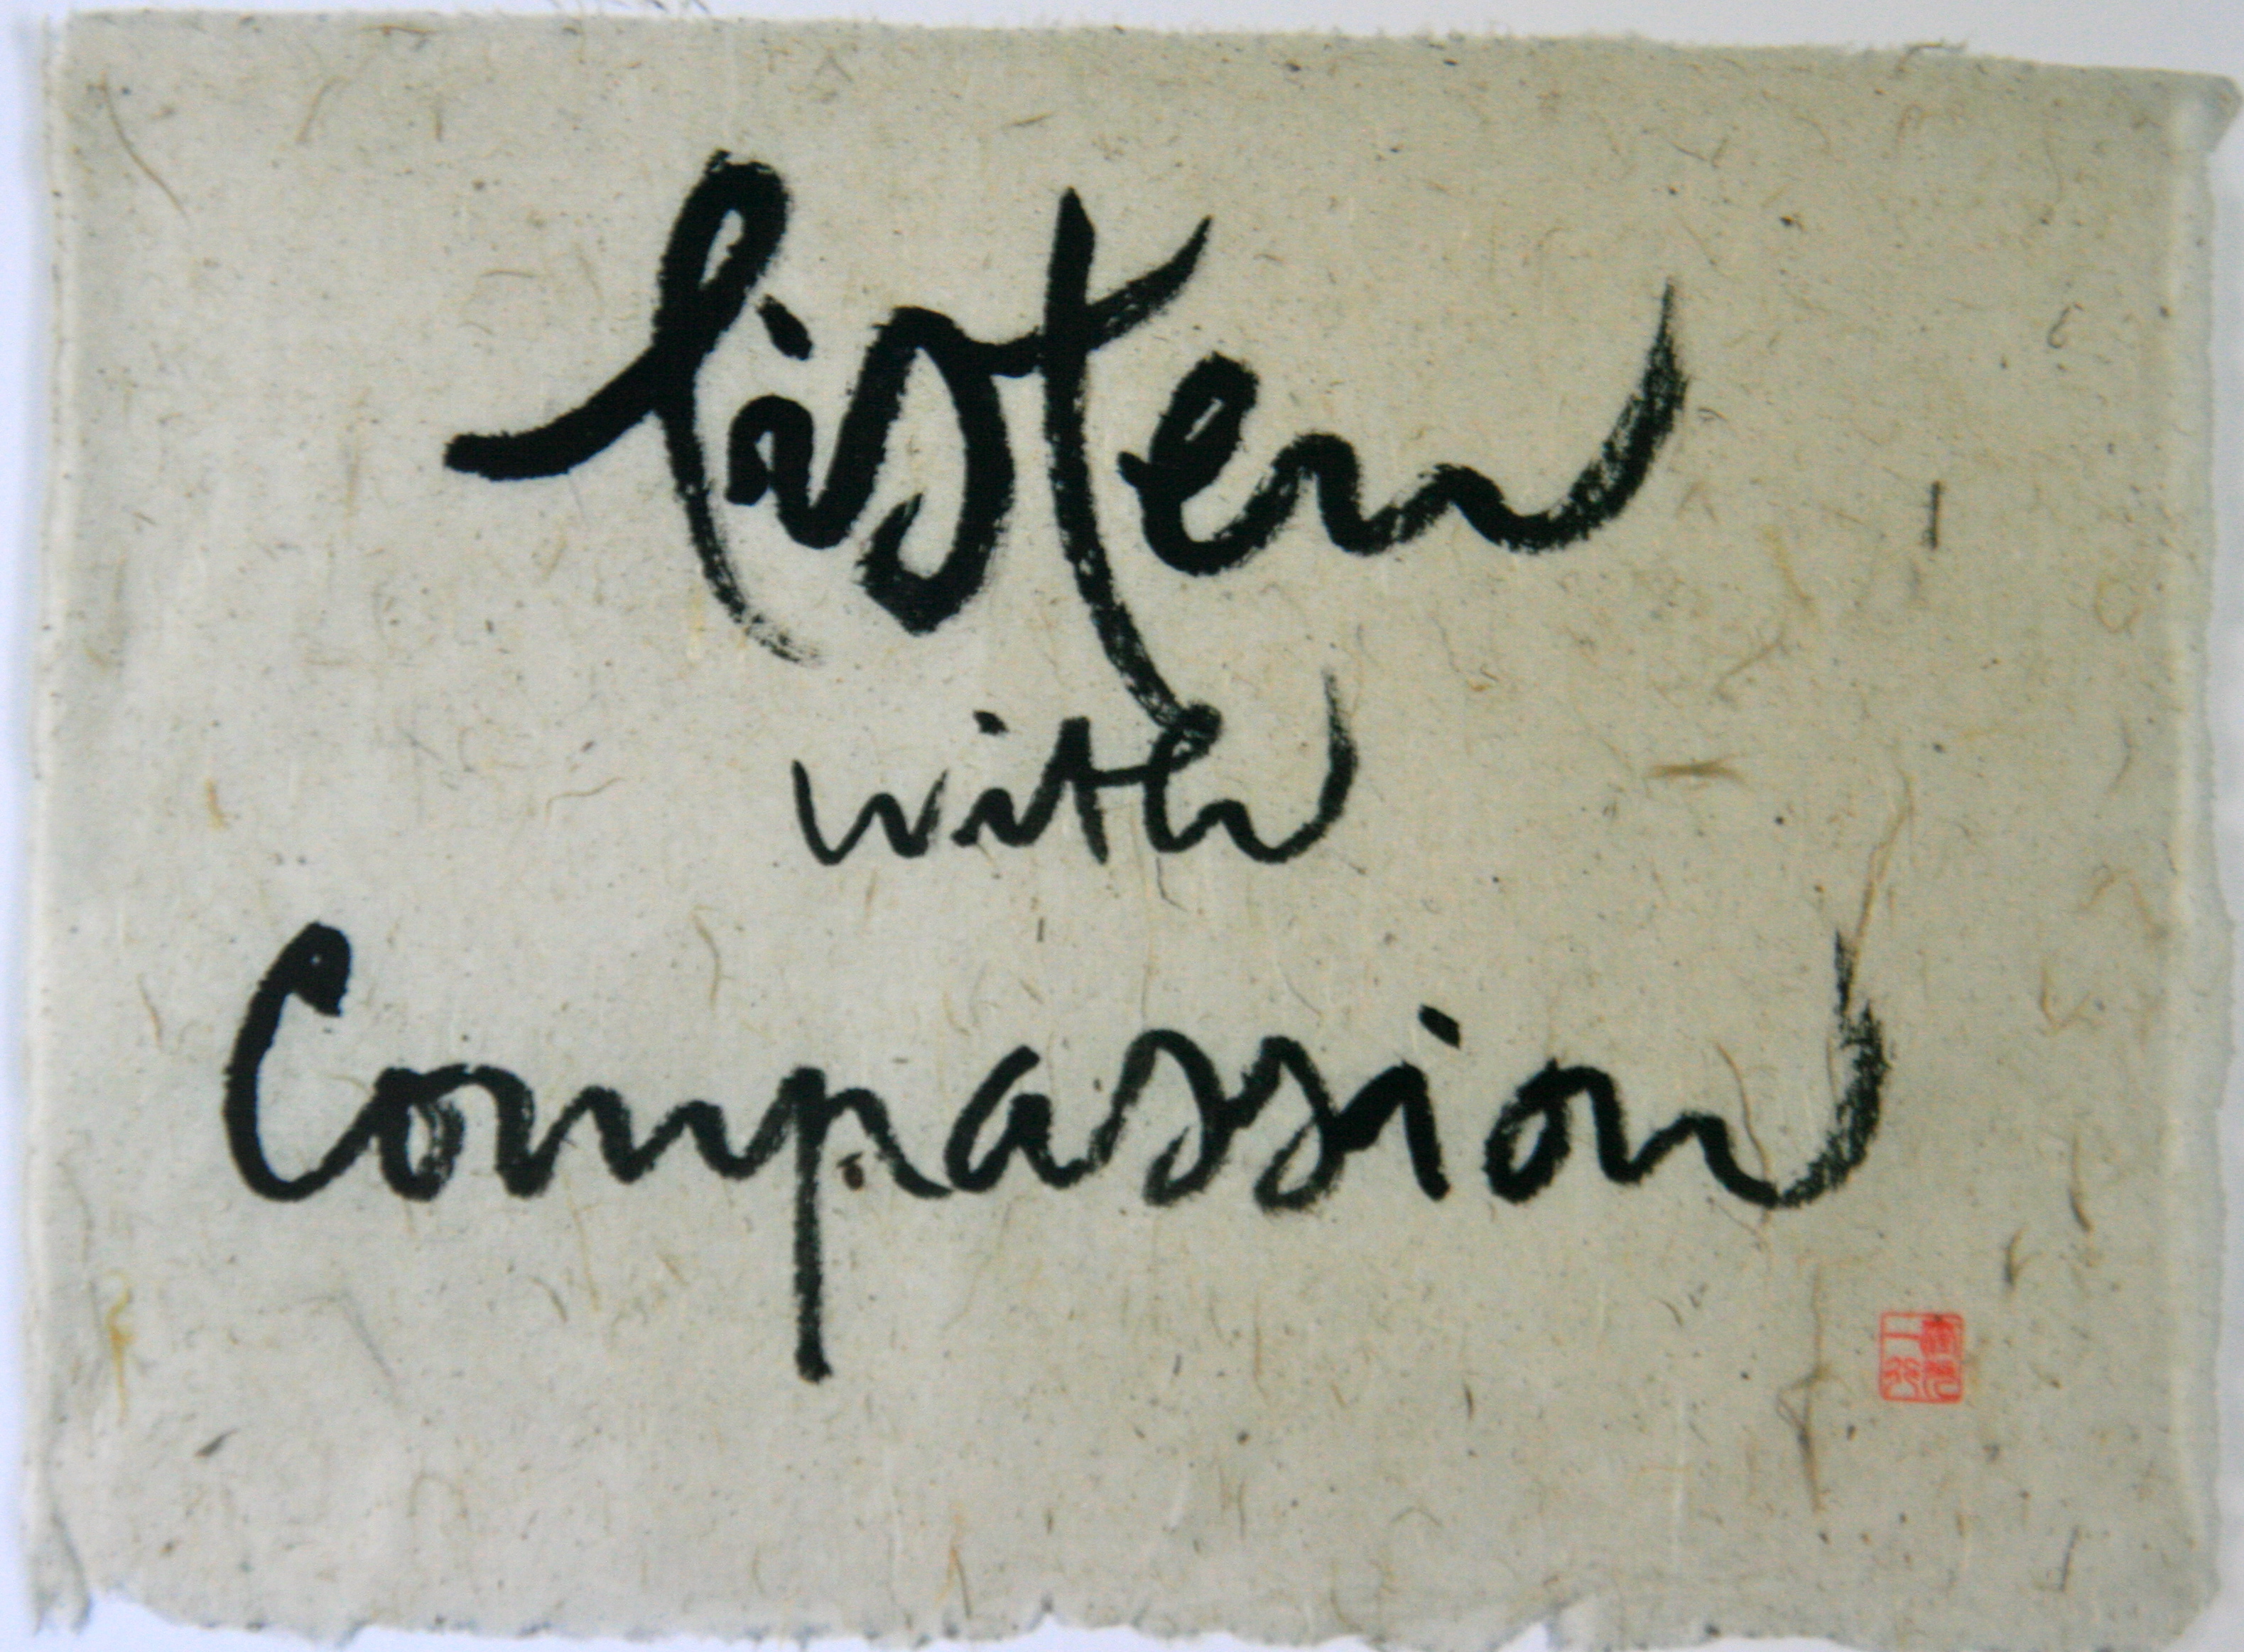 listen
with
Compassion